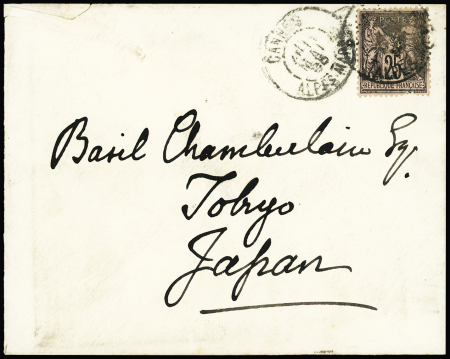 CANNES
ALPES MAR
POSTE
25
REPUBLIQUE FRANCAISE
Basil Chamberlain Esq.
Tokyo
Japan